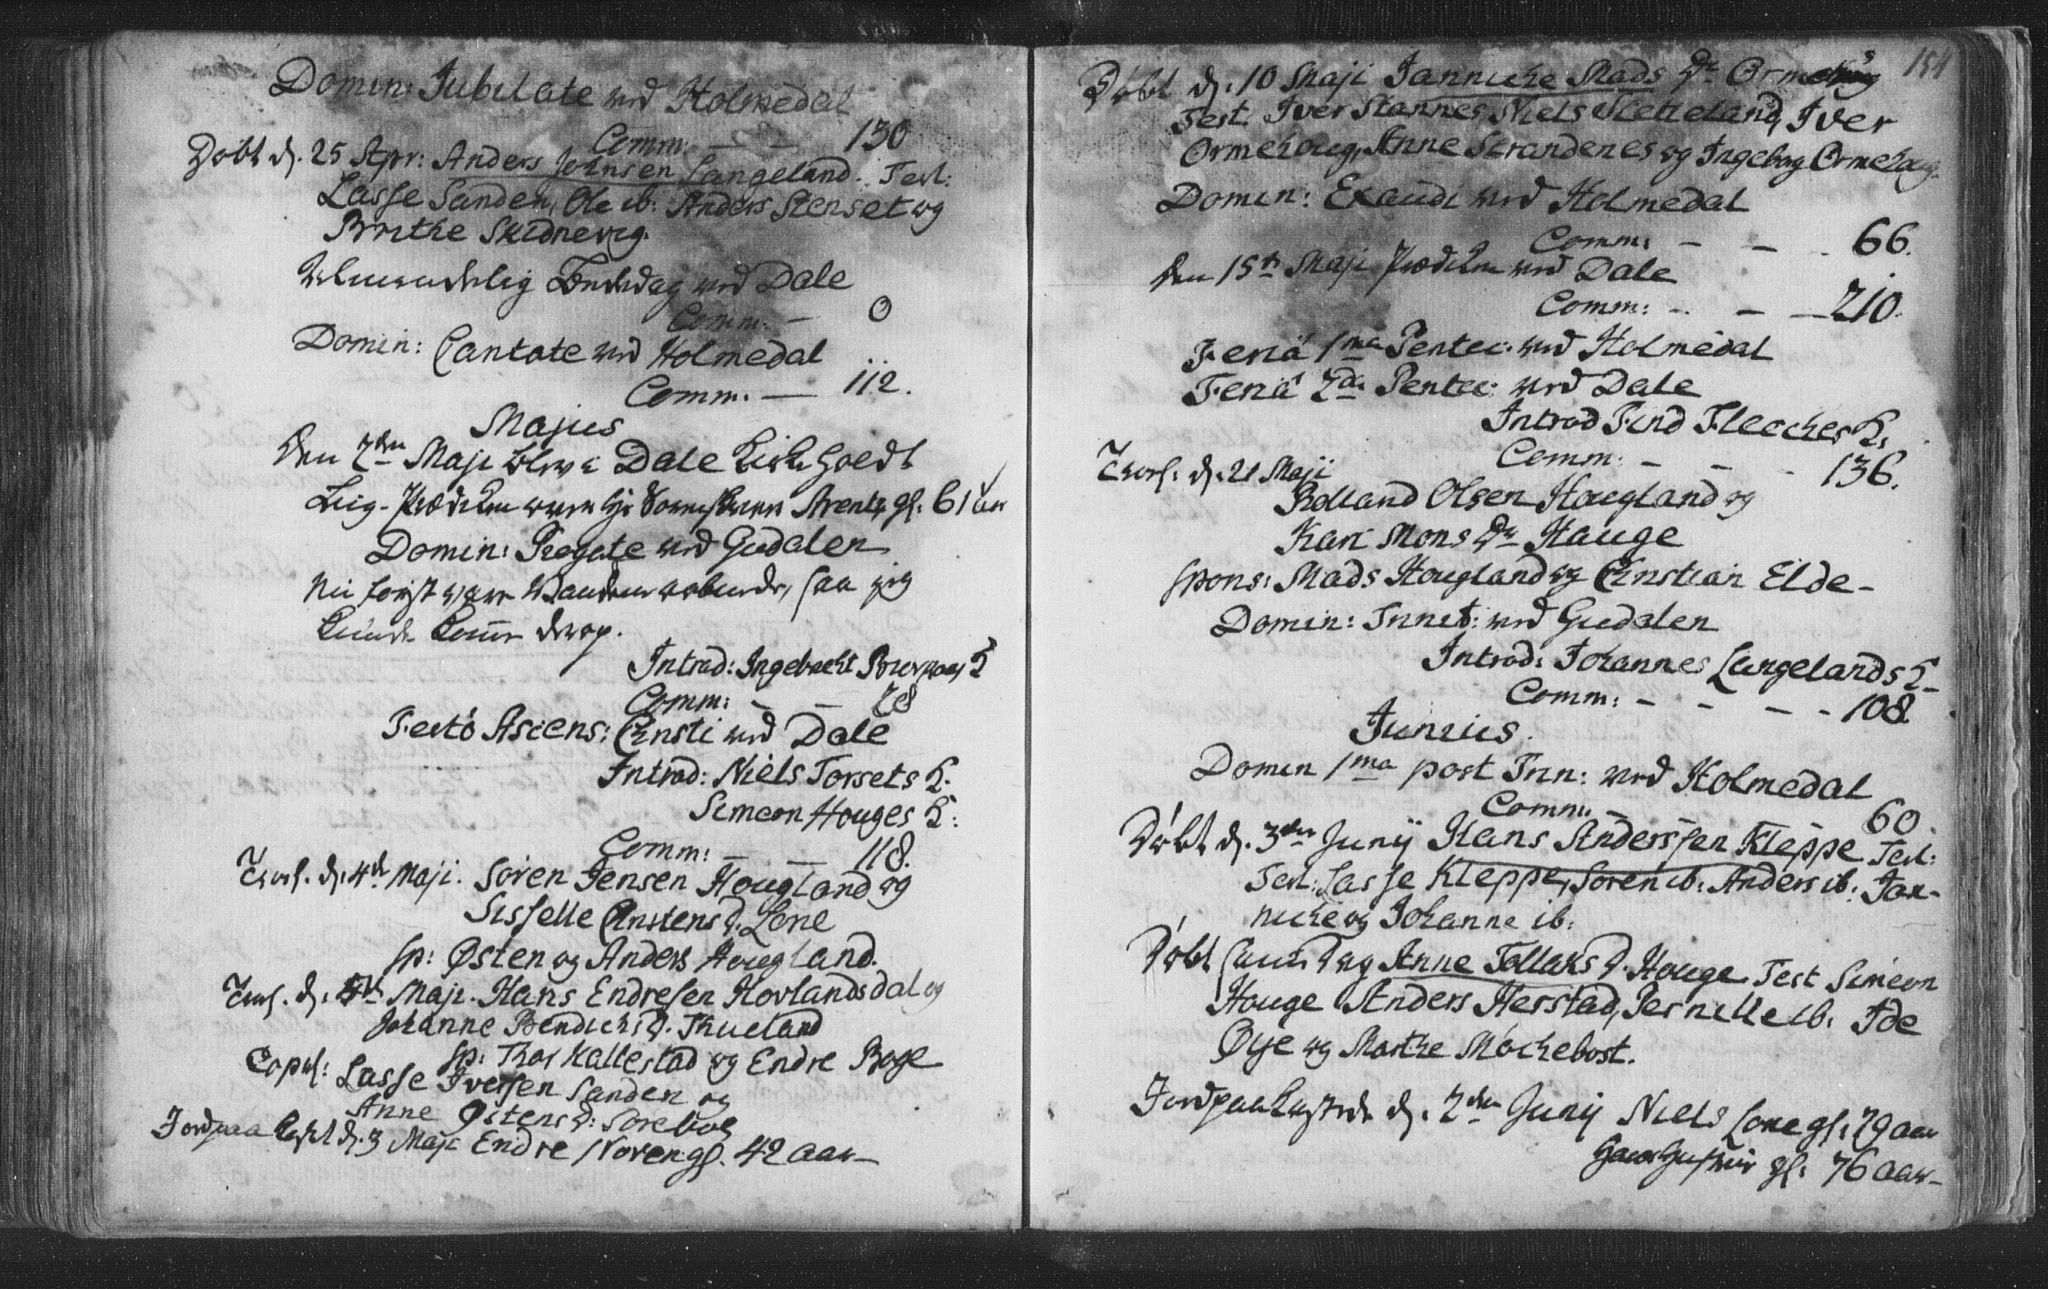 Domin: Jubilate ved Holmedal
Comm: — — 130
Døbt d. 25 Apr: Anders Johnsen Langeland. Test:
Lasse Sanden, Ole ib: Anders Stenset og
Brithe Skidnevig.
Almindelig Bededag ved Dale
Comm: — 0
Domin: Cantate ved Holmedal
Comm. — 112.
Majus
Den 2den Maji blev i Dale Kirke holdt
Liig-Prædiken over Hr Sorenskriver Arentz gl. 61 aar
Domin: Rogate ved Gudalen
Nu først var Vandene aabnede, saa jeg
kunde komme derop.
Introd: Ingebrecht K
Comm: — — 28
Festo Ascens: Christi ved Dale
Introd: Niels Torsets K.
Simeon Houges K:
Comm: — — 118.
Trol. d. 4de Maji. Søren Jensen Hougland og
Sisselle Christens D. Lone
sp: Østen og Anders Hougland.
Trol. d. Maji. Hans Endresen Hovlandsdal og
Johanne Bendichs D. Thueland
sp: Thor Kallestad og Endre Boge
Copul: Lasse Iversen Sanden og
Anne Østens D: Sørebøe
Jordpaakastet d. 3 Maji Endre Noren gl. 42 aar —
151
Døbt d. 10 Maji Janniche Mads Dr Ormehoug
Test: Iver Stannes, Niels Sletteland, Iver
Ormehoug, Anne Strandenes og Ingebog Ormehoug.
Domin: Exaudi ved Holmedal
Comm: — — — 66.
Den 15de Maji Prædiken ved Dale
Comm: — — — 210.
Feria 1ma Pentec: ved Holmedal
Feria 2da Pentec: ved Dale
Introd Find Fleches K.
Comm: — — — 136.
Trol. d. 21 Maji
Rolland Olsen Hougland og
Kari Mons Dr Hauge
spons: Mads Hougland og Christian Elde —
Domin: Trinit: ved Gudalen
Introd: Johannes Langelands K —
Comm: — — — — 108.
Junius.
Domin 1ma post Trin: ved Holmedal
Comm: — 60.
Døbt d. 3den Junij Hans Anderssen Kleppe Test:
Test: Lasse Kleppe, Søren ib: Anders ib: Jan-
niche og Johanne ib:
Døbt samme Dag Anne Tollaks D. Houge Test Simeon
Houge Anders Herstad, Pernille ib: Ide
Øye og Marthe Møchebost.
Jordpaakastede d. 2den Junij Niels Lone gl. 79 aar
Hans Hustrue gl: 76 aar —